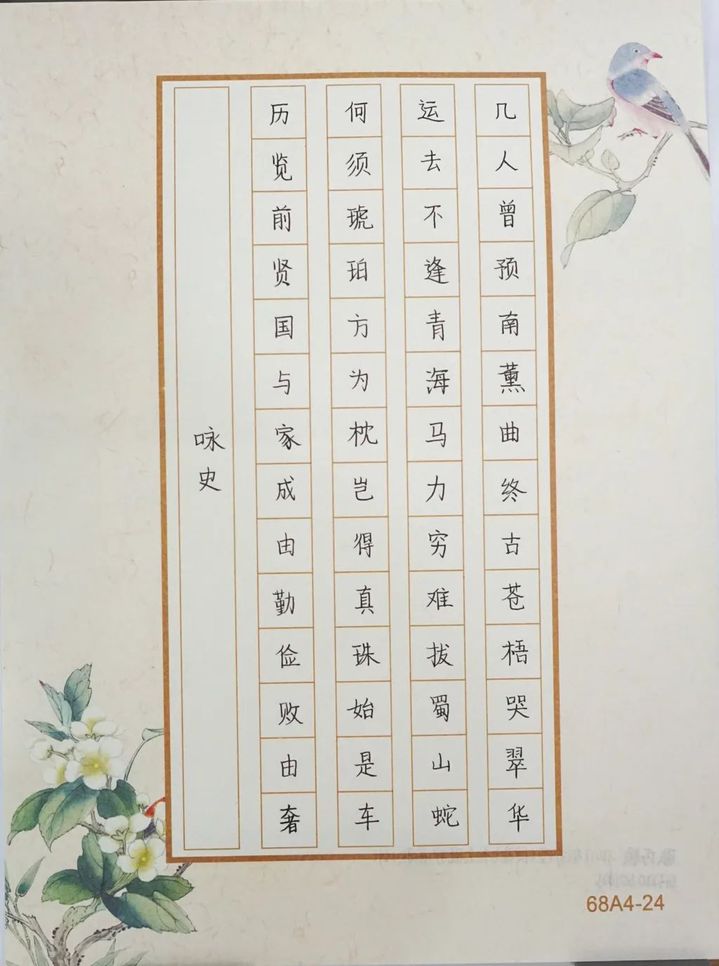 咏史
历览前贤国与家成由勤俭败由奢
何须琥珀方为枕岂得真珠始是车
运去不逢青海马力穷难拔蜀山蛇
几人曾预南薰曲终古苍梧哭翠华
68A4-24